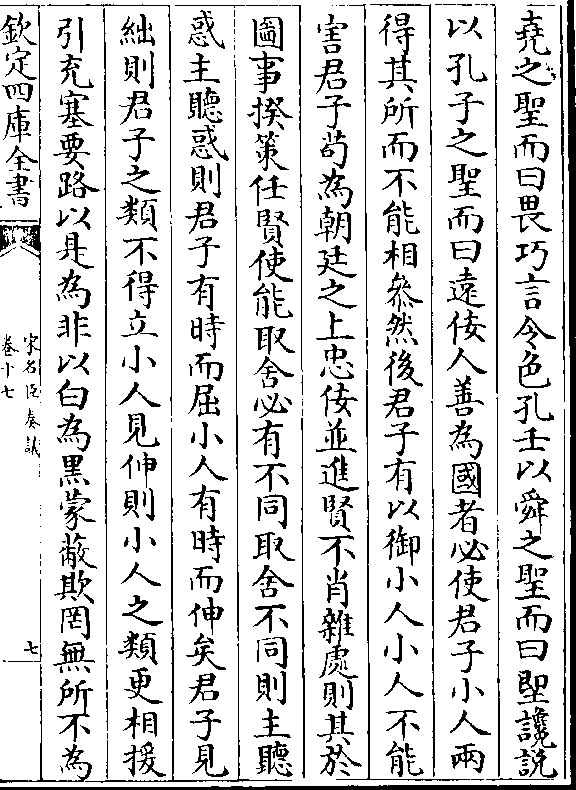 堯之聖而曰畏巧言令色孔壬以舜之聖而曰堲讒說
以孔子之聖而曰遠佞人善為國者必使君子小人兩
得其所而不能相叅然後君子有以御小人小人不能
害君子苟為朝廷之上忠佞並進賢不肖雜處則其於
圖事揆策任賢使能取舍必有不同取舍不同則主聽
惑主聽惑則君子有時而屈小人有時而伸矣君子見
絀則君子之類不得立小人見伸則小人之類更相援
引充塞要路以是為非以白為黑蒙蔽欺罔無所不為
欽定四庫全書
宋名臣奏議
卷十七
七